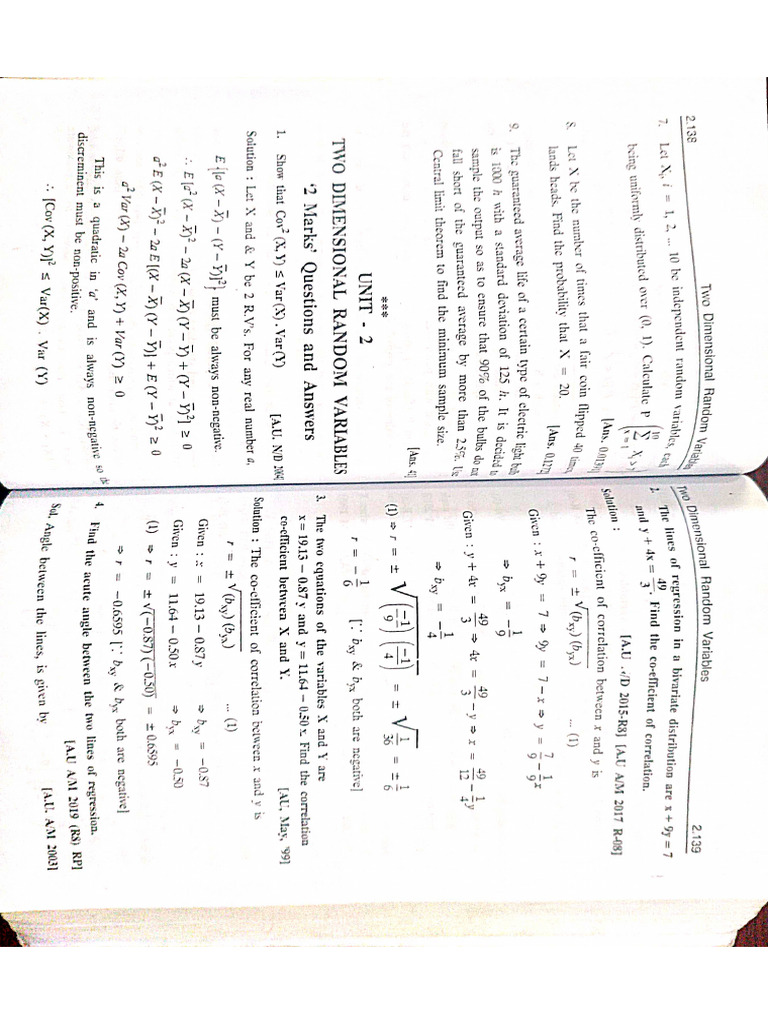 2.138
Two Dimensional Random Variable
7. Let Xᵢ, i = 1, 2, ... 10 be independent random variables, each
being uniformly distributed over (0, 1). Calculate P
[Ans.
8. Let X be the number of times that a fair coin flipped 40 times
lands heads. Find the probability that X = 20.
[Ans.
9. The guaranteed average life of a certain type of electric light bulb
is 1000 h with a standard deviation of 125 h. It is decided to
sample the output so as to ensure that 90% of the bulbs do not
fall short of the guaranteed average by more than 2.5%. Use
Central limit theorem to find the minimum sample size.
[Ans. 41]
***
UNIT - 2
TWO DIMENSIONAL RANDOM VARIABLES
'2 Marks' Questions and Answers
1. Show that Cov² (X, Y) ≤ Var (X) . Var (Y)
[A.U. N/D 2004]
Solution : Let X and & Y be 2 R.V's. For any real number a,
E {[a (X − X̄) − (Y − Ȳ)]²} must be always non-negative.
∴ E [a² (X − X̄)² − 2a (X − X̄) (Y − Ȳ) + (Y − Ȳ)²] ≥ 0
a² E (X − X̄)² − 2a E [(X − X̄) (Y − Ȳ)] + E (Y − Ȳ)² ≥ 0
a² Var (X) − 2a Cov (X, Y) + Var (Y) ≥ 0
This is a quadratic in 'a' and is always non-negative so
discreminent must be non-positive.
∴ [Cov (X, Y)]² ≤ Var(X) . Var (Y)
Two Dimensional Random Variables
2.139
2. The lines of regression in a bivariate distribution are x + 9y = 7
and y + 4x = 49/3. Find the co-efficient of correlation.
[A.U 2015-R8] [A.U A/M 2017 R-08]
Solution :
The co-efficient of correlation between x and y is
r = ± √(bxy) (byx) ... (1)
Given : x + 9y = 7 ⇒ 9y = 7 − x ⇒ y = 7/9 − 1/9 x
⇒ byx = − 1/9
Given : y + 4x = 49/3 ⇒ 4x = 49/3 − y ⇒ x = 49/12 − 1/4 y
⇒ bxy = − 1/4
(1) ⇒ r = ± √(−1/9) (−1/4) = ± √1/36 = ± 1/6
r = − 1/6 [∵ bxy & byx both are negative]
3. The two equations of the variables X and Y are
x = 19.13 − 0.87 y and y = 11.64 − 0.50 x. Find the correlation
co-efficient between X and Y.
[AU, May, '99]
Solution : The co-efficient of correlation between x and y is
r = ± √(bxy) (byx) ... (1)
Given : x = 19.13 − 0.87y ⇒ bxy = −0.87
Given : y = 11.64 − 0.50x ⇒ byx = −0.50
(1) ⇒ r = ± √(−0.87) (−0.50) = ± 0.6595
⇒ r = −0.6595 [∵ bxy & byx both are negative]
4. Find the acute angle between the two lines of regression.
[A.U A/M 2019 (R8) RP]
Sol. Angle between the lines, is given by
[A.U. A/M 2003]